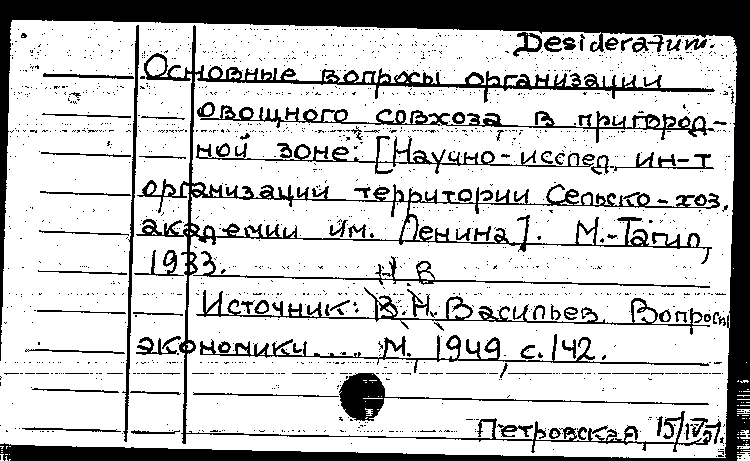 Desideratum.
Основные вопросы организации
овощного совхоза в пригород-
ной зоне: [Научно-исслед. ин-т
организации территории Сельско-хоз.
академии им. Ленина]. М.-Тагил,
1933.
Н В
Источник: В.Н. Васильев. Вопросы
экономики.... М., 1949, с. 142.
Петровская, 15/IV51.